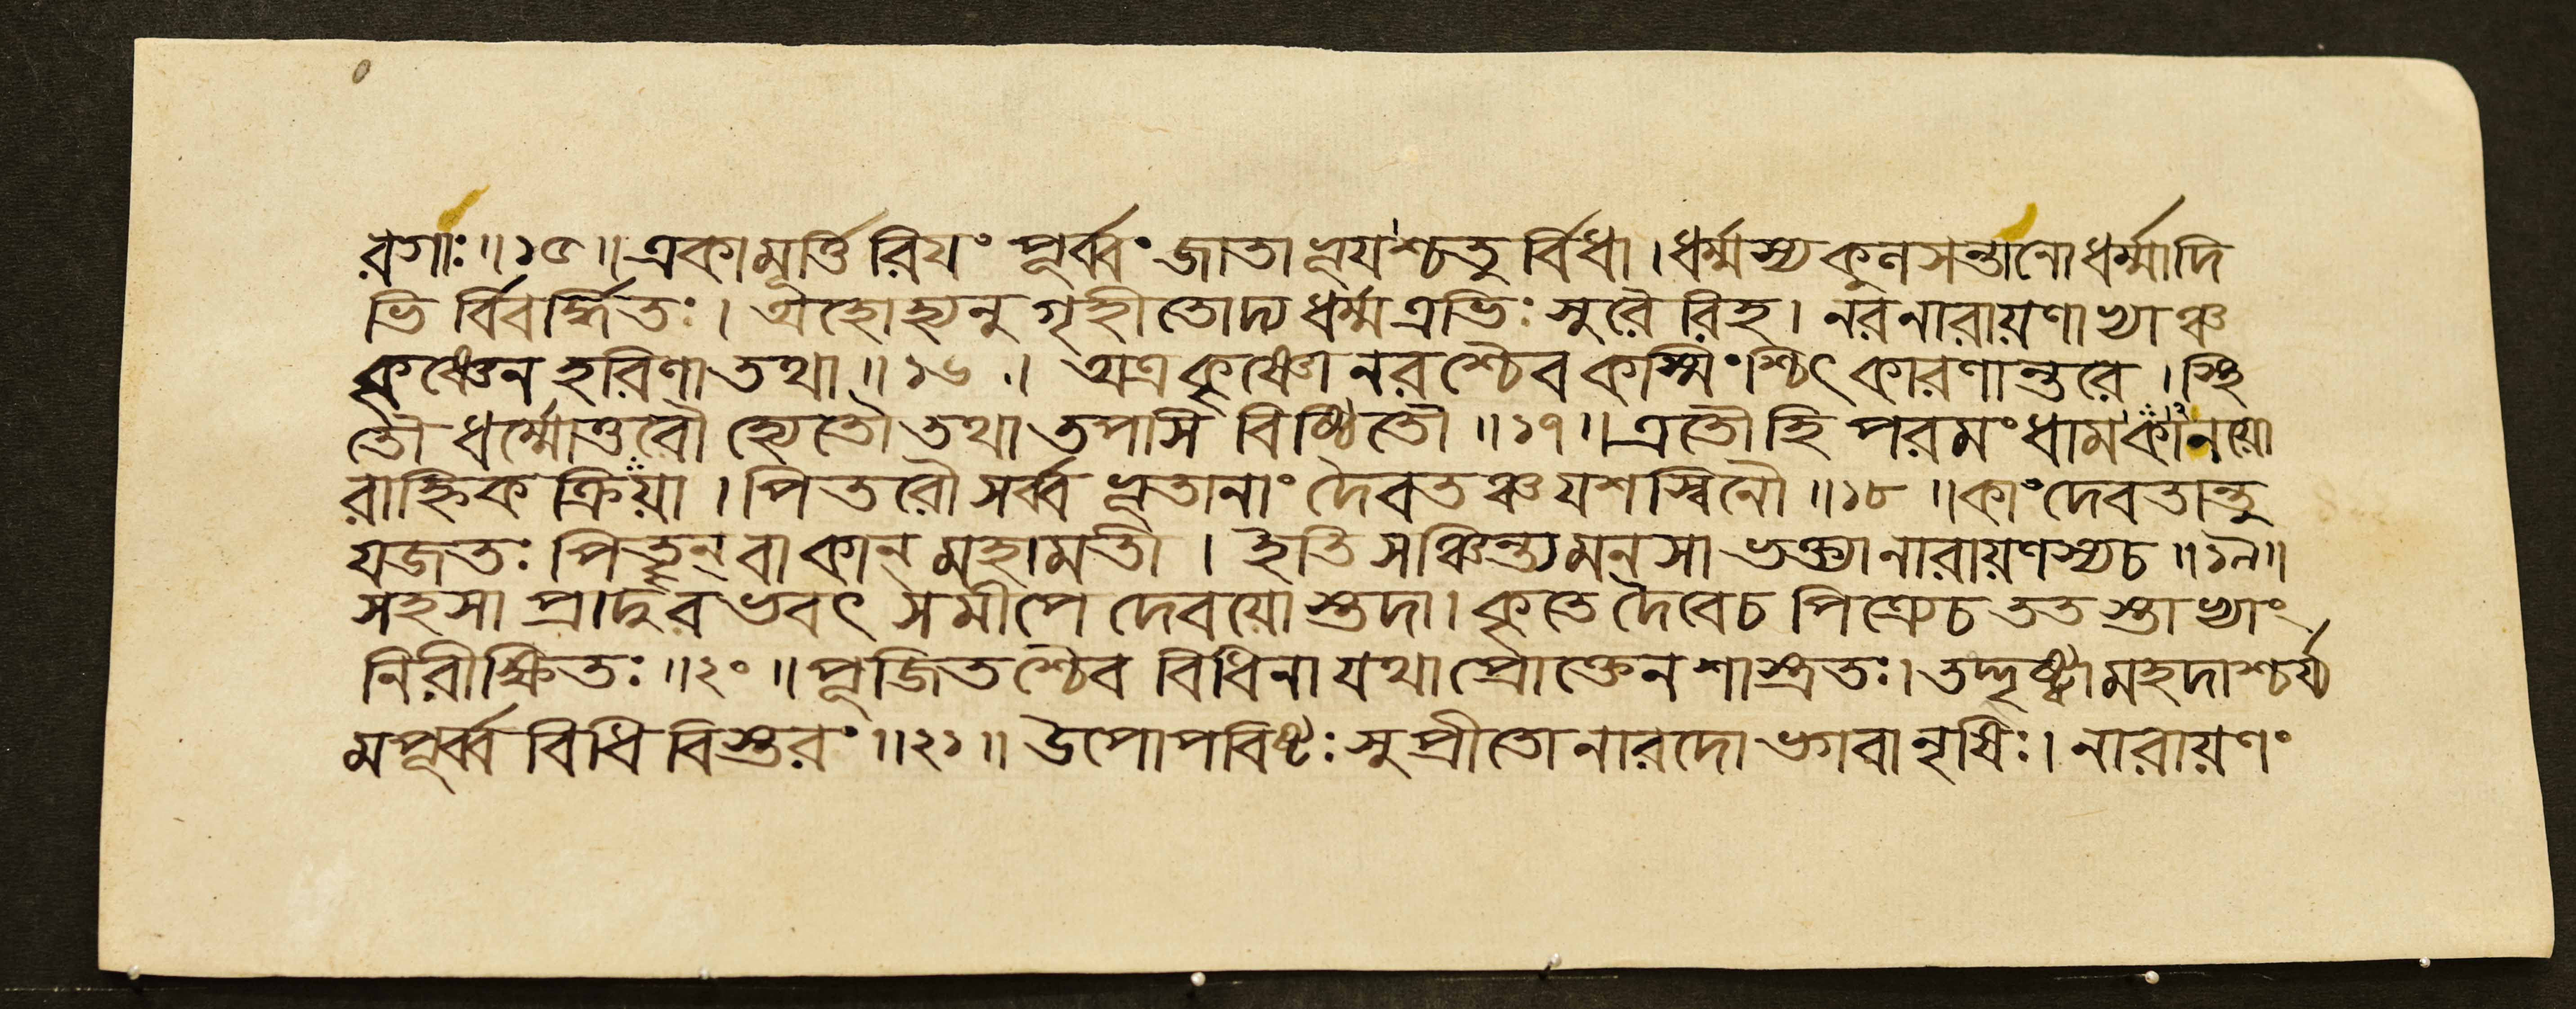 রগাঃ ॥ ১৫ ॥ একামূর্ত্তি রিযং পূর্ব্বং জাতা ভূযশ্চতু র্বিধা । ধর্ম্মস্য কুলসন্তানো ধর্ম্মাদি
ভি র্বিবর্দ্ধিতঃ । অহো হ্যনু গৃহীতোদ্য ধর্ম্ম এভিঃ সুরৈ রিহ । নরনারায়ণাখ্যাঞ্চ
কৃষ্ণেন হরিণা তথা ॥ ১৬ । অত্র কৃষ্ণো নরশ্চৈব কস্মিংশ্চিৎ কারণান্তরে । স্থি
তৌ ধর্ম্মোত্তরৌ হ্যেতৌ তথা তপসি বিষ্ঠিতৌ ॥ ১৭ ॥ এতৌ হি পরমং ধাম কানয়ো
রাহ্নিক ক্রিয়া । পিতরৌ সর্ব্ব ভূতানাং দৈবতঞ্চ যশস্বিনৌ ॥ ১৮ ॥ কাং দেবতান্তু
যজতঃ পিতৄন্ বা কান্ মহামতী । ইতি সঞ্চিন্ত্য মনসা ভক্ত্যা নারায়ণস্য চ ॥ ১৯ ॥
সহসা প্রাদুরভবৎ সমীপে দেবয়োস্তদা । কৃতে দৈবে চ পিত্রে চ ততস্তাভ্যাং
নিরীক্ষিতঃ ॥ ২০ ॥ পূজিতশ্চৈব বিধিনা যথা প্রোক্তেন শাস্ত্রতঃ । তদ্দৃষ্ট্বা মহদাশ্চর্য্য
মপূর্ব্ব বিধি বিস্তরং ॥ ২১ ॥ উপোপবিষ্টঃ সুপ্রীতো নারদো ভগবানৃষিঃ । নারায়ণং